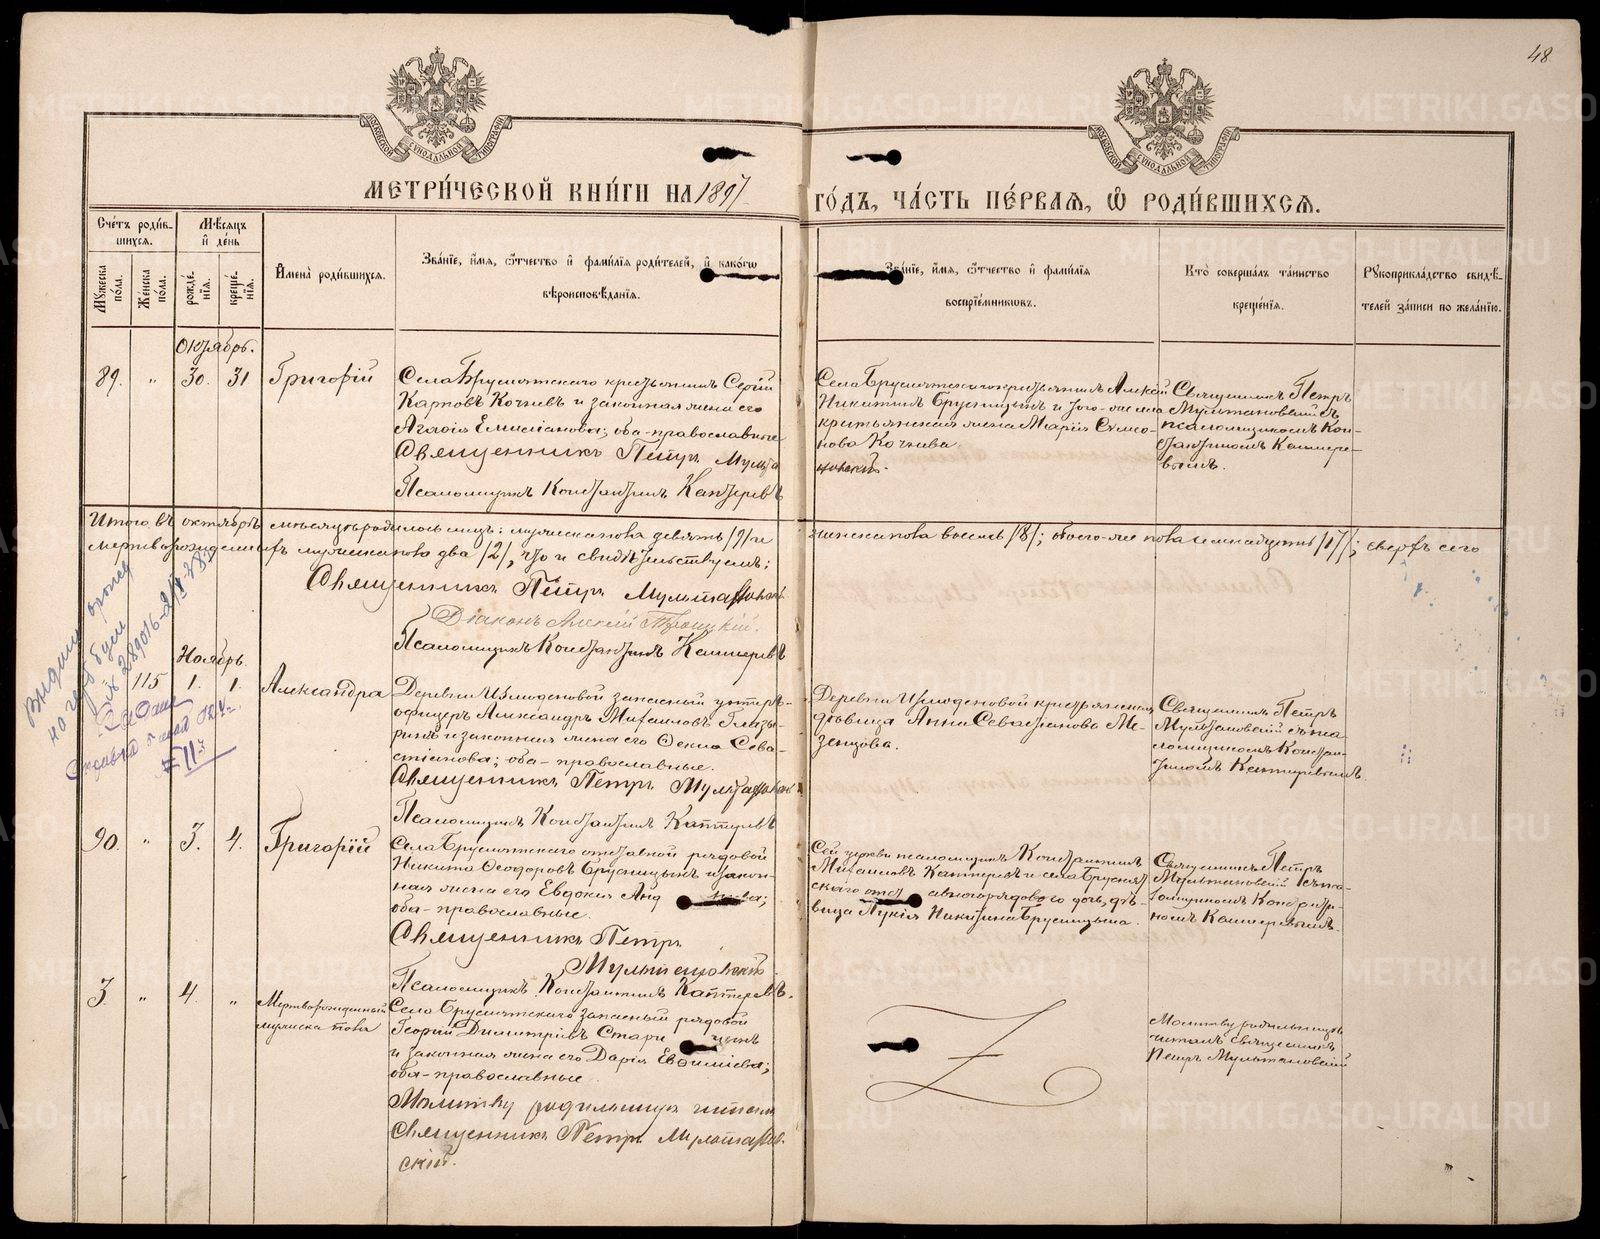 48
МЕТРИ́ЧЕСКОЙ КНИ́ГИ НА 1897 ГО́ДЪ, ЧА́СТЬ ПЕ́РВАЯ, Ѡ РОДИ́ВШИХСЯ.
Сче́тъ роди́вшихся.
Мꙋ́жеска по́ла.
Же́нска по́ла.
Мѣ́сяцъ и де́нь
рожде́нїя.
креще́нїя.
И́мена роди́вшихся.
Зва́нїе, и́мя, ѻ́тчество и фами́лїя роди́телей, и како́гѡ
вѣроисповѣ́данїя.
Зва́нїе, и́мя, ѻ́тчество и фами́лїя
воспрїе́мникѡвъ.
Кто̀ соверша́лъ та́инство
креще́нїя.
Рꙋкоприкла́дство свидѣ́телей за́писи по жела́нїю.
Октябрь.
89. " 30. 31 Григорій
Села Брусянскаго крестьянинъ Сергій
Карповъ Кочневъ и законная жена его
Аглаія Емиліанова; оба православные
Священникъ Петръ Мульта
новскій.
Псаломщикъ Константинъ Каптеревъ
Села Брусянскаго крестьянинъ Алексій
Никитинъ Брусницынъ и того-же села
крестьянская жена Марія Симео-
нова Кочнева.
Священникъ Петръ
Мультановскій съ
псаломщикомъ Кон-
стантиномъ Каптере-
вымъ.
Итого въ октябрѣ мѣсяцѣ родилось лицъ: мужеска пола девять /9/ и женска пола восемь /8/; обоего-же пола семнадцать /17/; сверхъ сего
мертворожденныхъ мужеска пола два /2/, что и свидѣтельствуемъ:
Священникъ Петръ Мультановск
Діаконъ Алексій Троицкій.
Псаломщикъ Константинъ Каптеревъ
Ноябрь
115 1. 1. Александра
Деревни Измоденовой запасный унтеръ-
офицеръ Александръ Михаиловъ Глазы-
ринъ и законная жена его Ѳекла Сева-
стіанова; оба-православные.
Священникъ Петръ Мультановск
Псаломщикъ Константинъ Каптеревъ
Деревни Измоденовой крестьянская
дѣвица Анна Севастіанова Ме-
зенцова.
Священникъ Петръ
Мультановскій съ пса-
ломщикомъ Констан-
тиномъ Каптеревымъ
90. " 3. 4. Григорій
Села Брусянскаго отставной рядовой
Никита Ѳеодоровъ Брусницынъ и закон-
ная жена его Евдокія
оба-православные.
Священникъ Петръ
Мультановскій
Псаломщикъ Константинъ Каптеревъ.
Сей церкви псаломщикъ Константинъ
Михаиловъ Каптеревъ и села Брусян-
скаго отставнаго рядового дочь, дѣ-
вица Лукія Никитина Брусницына.
Священникъ Петръ
Мультановскій съ пса-
ломщикомъ Констан-
номъ Каптеревымъ.
3. " 4. " Мертворожденный
мужеска пола
Села Брусянскаго запасный рядовой
Георгій Димитріевъ
и законная жена его Дарія Евѳиміева;
оба-православные.
Молитву родильницѣ читалъ
священникъ Петръ Мультанов-
скій.
Молитву родильницѣ
читалъ священникъ
Петръ Мультановскій